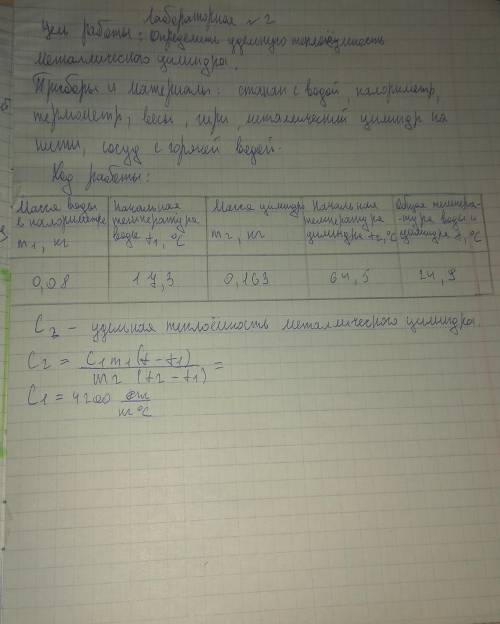 Лабораторная №2
Цель работы: Определить удельную теплоёмкость
металлического цилиндра.
Приборы и материалы: стакан с водой, калориметр,
термометр, весы, гири, металлический цилиндр на
нити, сосуд с горячей водой.
Ход работы:
Масса воды в калориметре m1, кг
Начальная температура воды t1, °C
Масса цилиндра m2, кг
Начальная температура цилиндра t2, °C
Общая темпера-тура воды и цилиндра t, °C
0,08 17,3 0,163 64,5 24,9
C2 - удельная теплоёмкость металлического цилиндра.
C2 = C1m1(t-t1) / m2 (t2-t1) =
C1 = 4200 Дж/кг°C